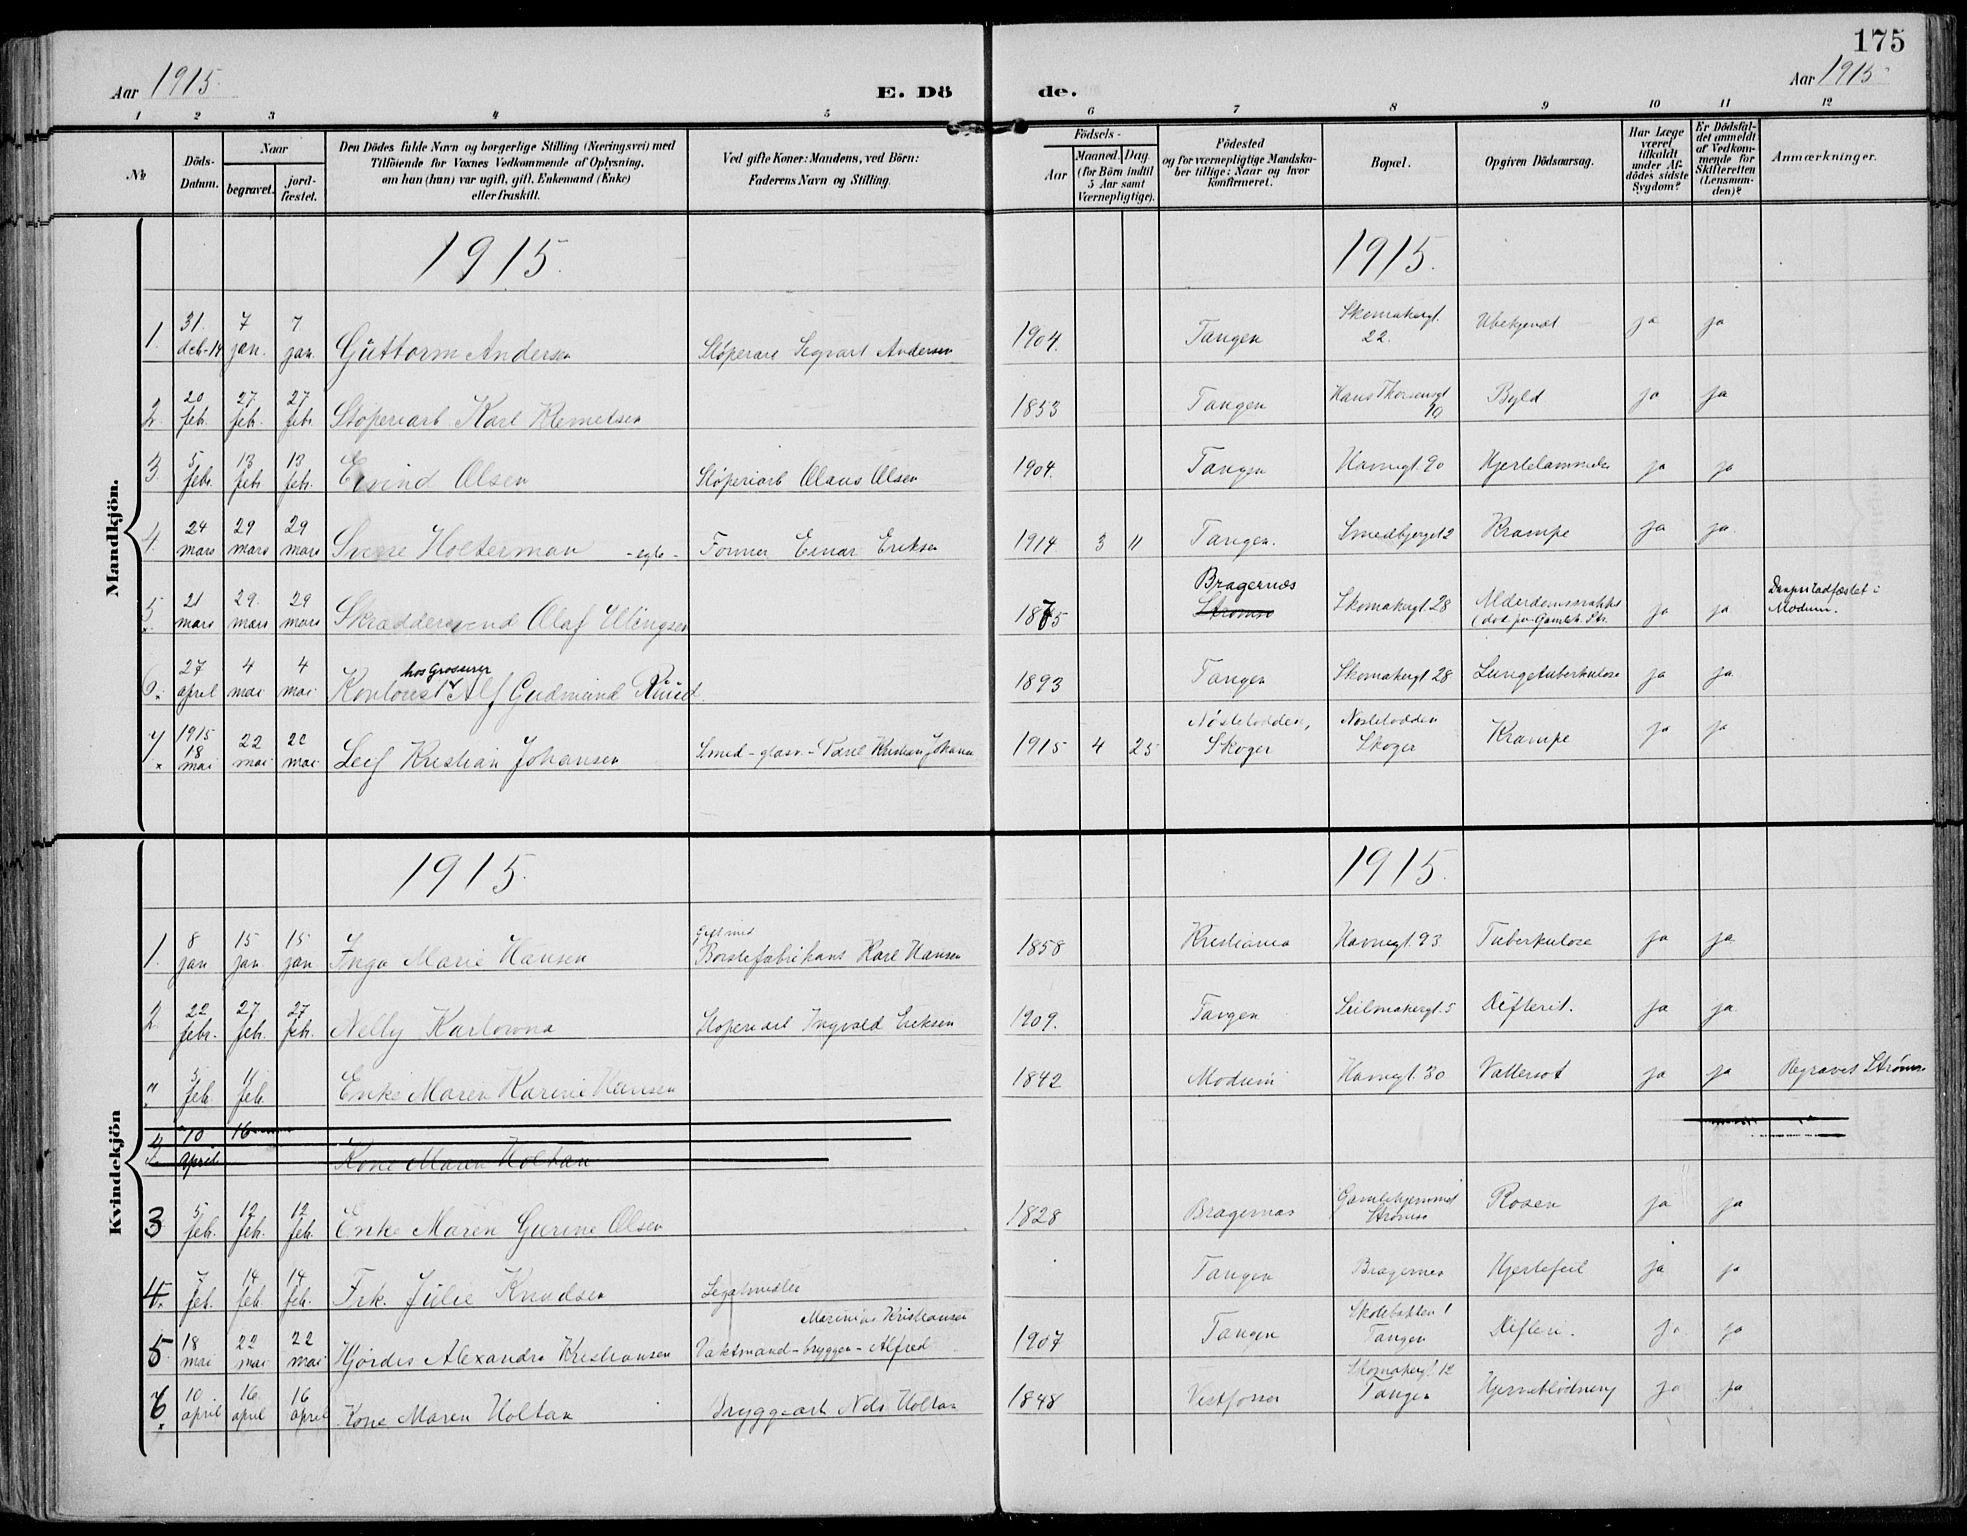 175
Aar 1915.
E. Dö
de.
Aar 1915
1 2 3 4 5 6 7 8 9 10 11 12
№
Döds-
Datum.
Naar
begravet.
jord-
fæstet.
Den Dödes fulde Navn og borgerlige Stilling (Næringsvei) med
Tilföiende for Voxnes Vedkommende af Oplysning,
om han (hun) var ugift, gift, Enkemand (Enke)
eller fraskilt.
Ved gifte Koner: Mandens, ved Börn:
Faderens Navn og Stilling.
Födsels-
Aar
Maaned. Dag.
(for Börn indtil
5 Aar samt
Værnepligtige).
Födested
og for værnepligtige Mandska-
ber tillige: Naar og hvor
konfirmeret.
Bopæl.
Opgiven Dödsaarsag.
Har Læge
været
tilkaldt
under Af-
dödes sidste
Sygdom?
Er Dödsfal-
det anmeldt
af Vedkom-
mende for
Skifteretten
(Lensman-
den)?
Anmærkninger.
Mandkjön.
1915. 1915.
1. 31. deb-14 7 jan. 7 jan. Guttorm Andersen Støperarb Segvart Andersen 1904. Tangen Skomakergt. 22. Ubekjendt ja ja
2. 20 feb. 27. feb. 27 feb. Støperiarb Karl Klemetsen 1853 Tangen Hans Thorsensgt Byld ja ja
3. 5 febr. 13 febr 13 febr. Eivind Olsen Støperiarb Olaus Olsen 1904. Tangen Havnegt. 90 Hjertelammelse ja ja
4. 24 mars 29 mars 29 mars Sverre Holterman - egte - Former Einar Eriksen 1914 3 11 Tangen. Smedbjerget 2 Krampe ja ja.
5. 21 mars 29. mars 29 mars Skræddersvend Olaf Ellingsen 1875 Bragernæs Strømsø Skomakergt. 28 Alderdomssvakhet (død på Gamleh. Str. ja ja Modum.
6. 27 april 4 mai 4 mai Kontorist hos Grosserer Alf Gudmund Ruud. 1893 Tangen Skomakergt 28 Lungetuberkulose ja ja
7. 1915 18 mai 22 mai 22 mai Leif Kristian Johansen Smed - glasv. - Karl Kristian Johansen 1915 4 25 Nøstelodden, Skoger Nøstelodden Skoger Krampe ja ja
Kvindekjön
1915. 1915.
1. 8 jan 15 jan 15 jan Inga Marie Hansen Gift med Børstefabrikant Karl Hansen 1858 Kristiania Havnegt. 93 Tuberkulose ja ja
2. 22 febr. 27 febr. 27 febr. Nelly Karlovna Støperiarb Ingvald Eriksen 1909. Tangen Seilmakergt. 5 Difterit. ja ja
" 5 feb. 11 feb. Enke Maren Karine Hansen 1842 Modum Havnegt. 30 Vattersot ja ja Begravet Strømsø
10 april 16 Kone Maren Holtan
3 5 feb. 12 feb. 12 feb. Enke Maren Gurine Olsen 1828 Bragernæs Gamlehjemmet Strømsø Rosen ja ja
4. 7 feb. 14 feb. 14 feb. Frk. Julie Knudsen Legatnyder Tangen Bragernes Hjertefeil ja ja
5 18 mai 22 mai 22 mai Hjørdis Alexandra Kristiansen Vaktmand - bryggen - Alfred Marinius Kristiansen 1907 Tangen Skolebakken 1 Tangen Difteri. ja ja
6. 10 april 16 april 16 april Kone Maren Holtan Bryggearb Nils Holtan 1848 Vestfossen Skomakergt. 12 Tangen Hjerneblødning ja ja